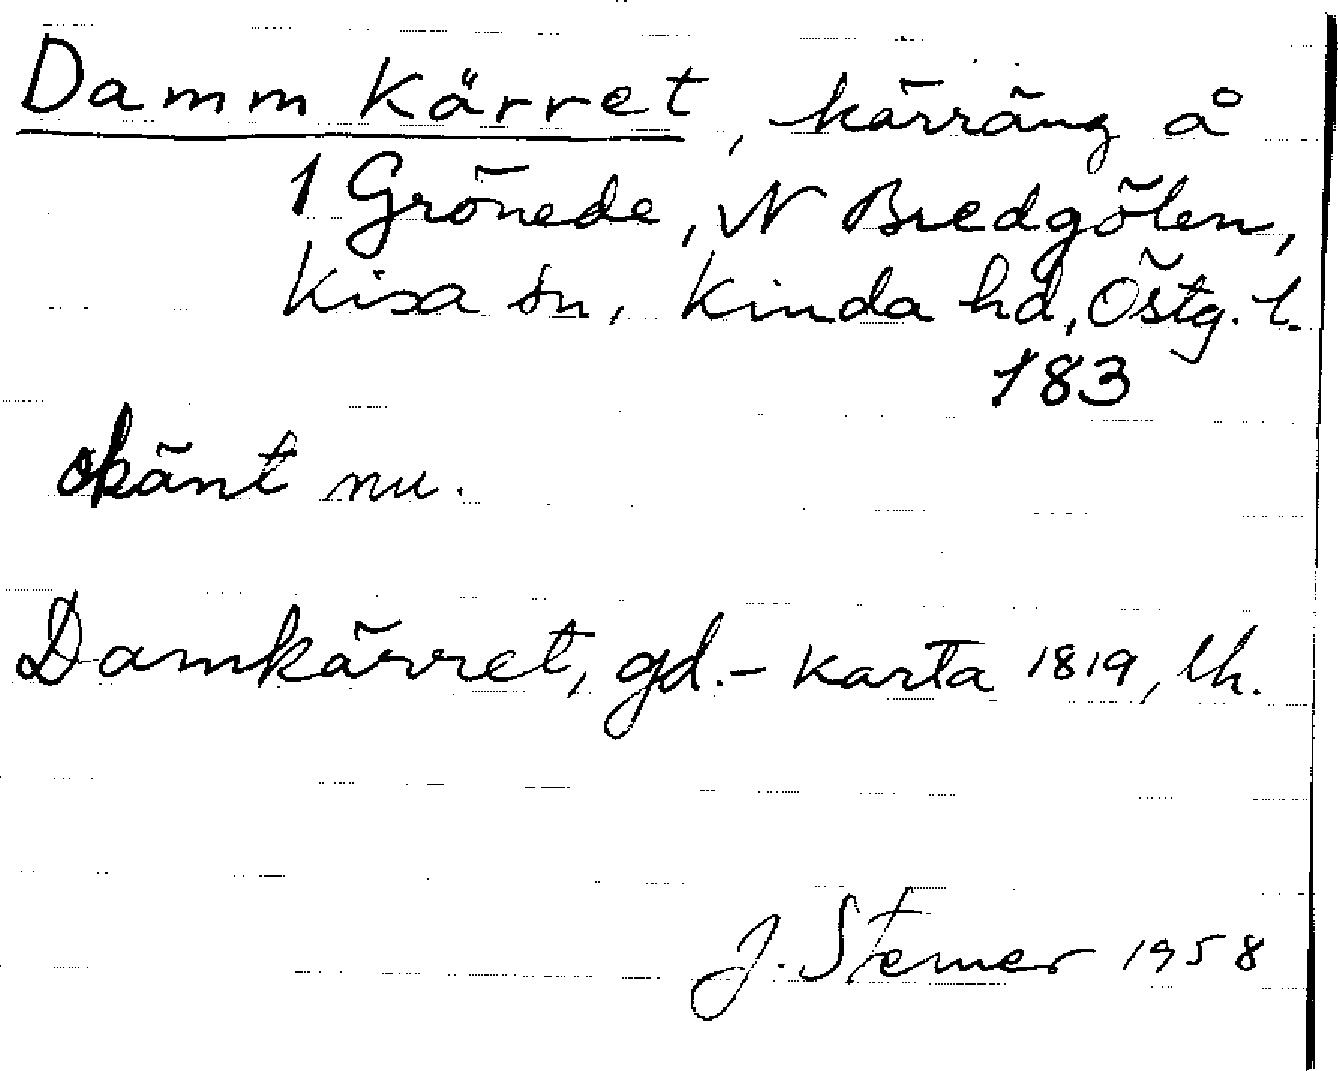 Dammkärret, kärräng å
1 Grönede, N Bredgölen,
Kisa sn, Kinda hd, Östg. l.
183
okänt nu.
Damkärret, gd. - karta 1819, lh.
J. Sterner 1958